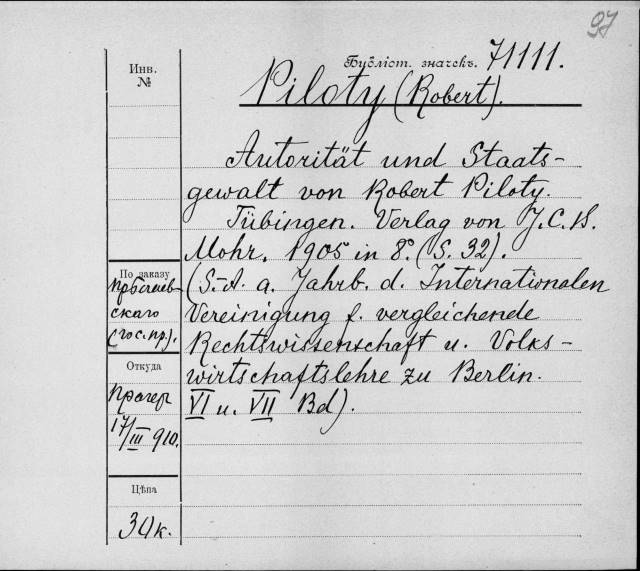 97
Библіот. значекъ. 71111.
Инв.
№
Piloty (Robert).
Autorität und Staats-
gewalt von Robert Piloty.
Tübingen. Verlag von J.C.B.
Mohr. 1905 in 8° (S. 32).
(S.-A. a. Jahrb. d. Internationalen
Vereinigung f. vergleichende
Rechtswissenschaft u. Volks-
wirtschaftslehre zu Berlin.
VI u. VII Bd).
По заказу
скаго
(гос. пр.).
Откуда
Прагер
17/III 910.
Цѣна
34к.